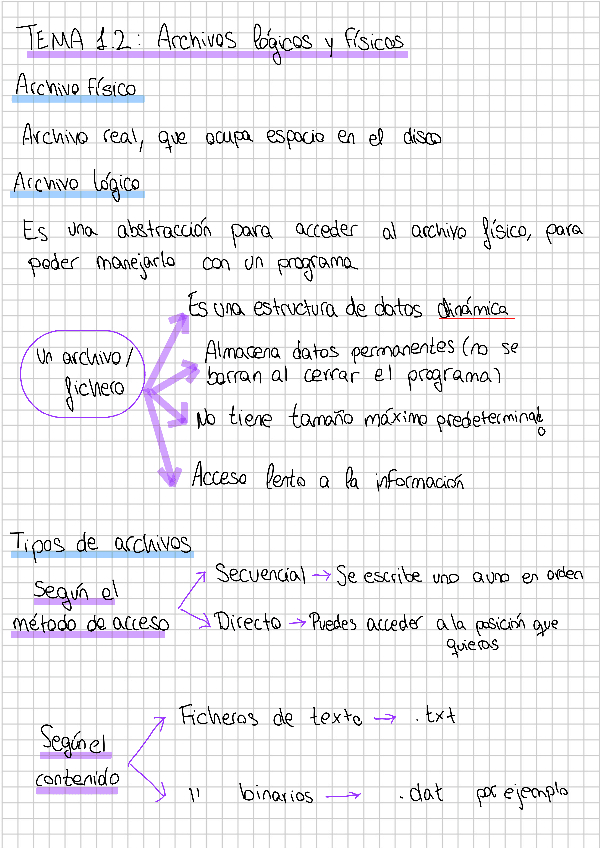 TEMA 1.2: Archivos lógicos y físicos
Archivo físico
Archivo real, que ocupa espacio en el disco
Archivo lógico
Es una abstracción para acceder al archivo físico, para
poder manejarlo con un programa
Un archivo/
fichero
Es una estructura de datos dinámica
Almacena datos permanentes (no se
borran al cerrar el programa)
No tiene tamaño máximo predeterminado
Acceso lento a la información
Tipos de archivos
Según el
método de acceso
Secuencial → Se escribe uno a uno en orden
Directo → Puedes acceder a la posición que
quieras
Según el
contenido
Ficheros de texto → .txt
" binarios → .dat por ejemplo